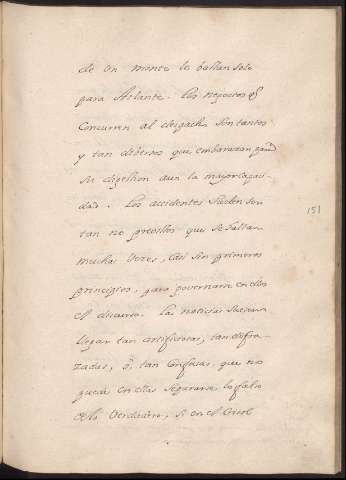 de un monte le bastan solo
para Atlante. Los negocios q̃
concurren al despacho son tantos
y tan diversos que embarazan
su digestion aun la mayor capaci-
dad. Los accidentes suelen ser
tan no previstos que se hallan
muchas vezes, casi sin primeros
principios, para governarse en ellos
el discurso. Las noticias suelen
llegar tan artificiosas, tan disfra-
zadas, ò, tan confusas, que no
puede en ellas separarse lo falso
de lo verdadero, si en el Crisol
151